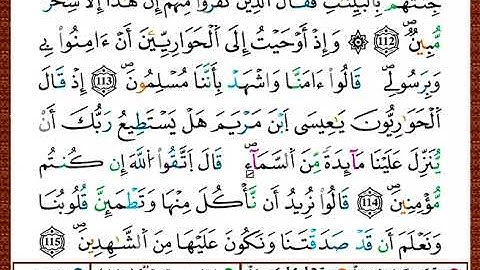 جِئْتَهُم بِالْبَيِّنَٰتِ فَقَالَ الَّذِينَ كَفَرُوا مِنْهُمْ إِنْ هَٰذَا إِلَّا سِحْرٌ
مُّبِينٌ 112 ۞ وَإِذْ أَوْحَيْتُ إِلَى الْحَوَارِيِّينَ أَنْ ءَامِنُوا بِي
وَبِرَسُولِي قَالُوا ءَامَنَّا وَاشْهَدْ بِأَنَّنَا مُسْلِمُونَ 113 إِذْ قَالَ
الْحَوَارِيُّونَ يَٰعِيسَى ابْنَ مَرْيَمَ هَلْ يَسْتَطِيعُ رَبُّكَ أَنْ
يُنَزِّلَ عَلَيْنَا مَآئِدَةً مِّنَ السَّمَآءِ قَالَ اتَّقُوا اللَّهَ إِن كُنتُم
مُّؤْمِنِينَ 114 قَالُوا نُرِيدُ أَن نَّأْكُلَ مِنْهَا وَتَطْمَئِنَّ قُلُوبُنَا
وَنَعْلَمَ أَن قَدْ صَدَقْتَنَا وَنَكُونَ عَلَيْهَا مِنَ الشَّٰهِدِينَ 115